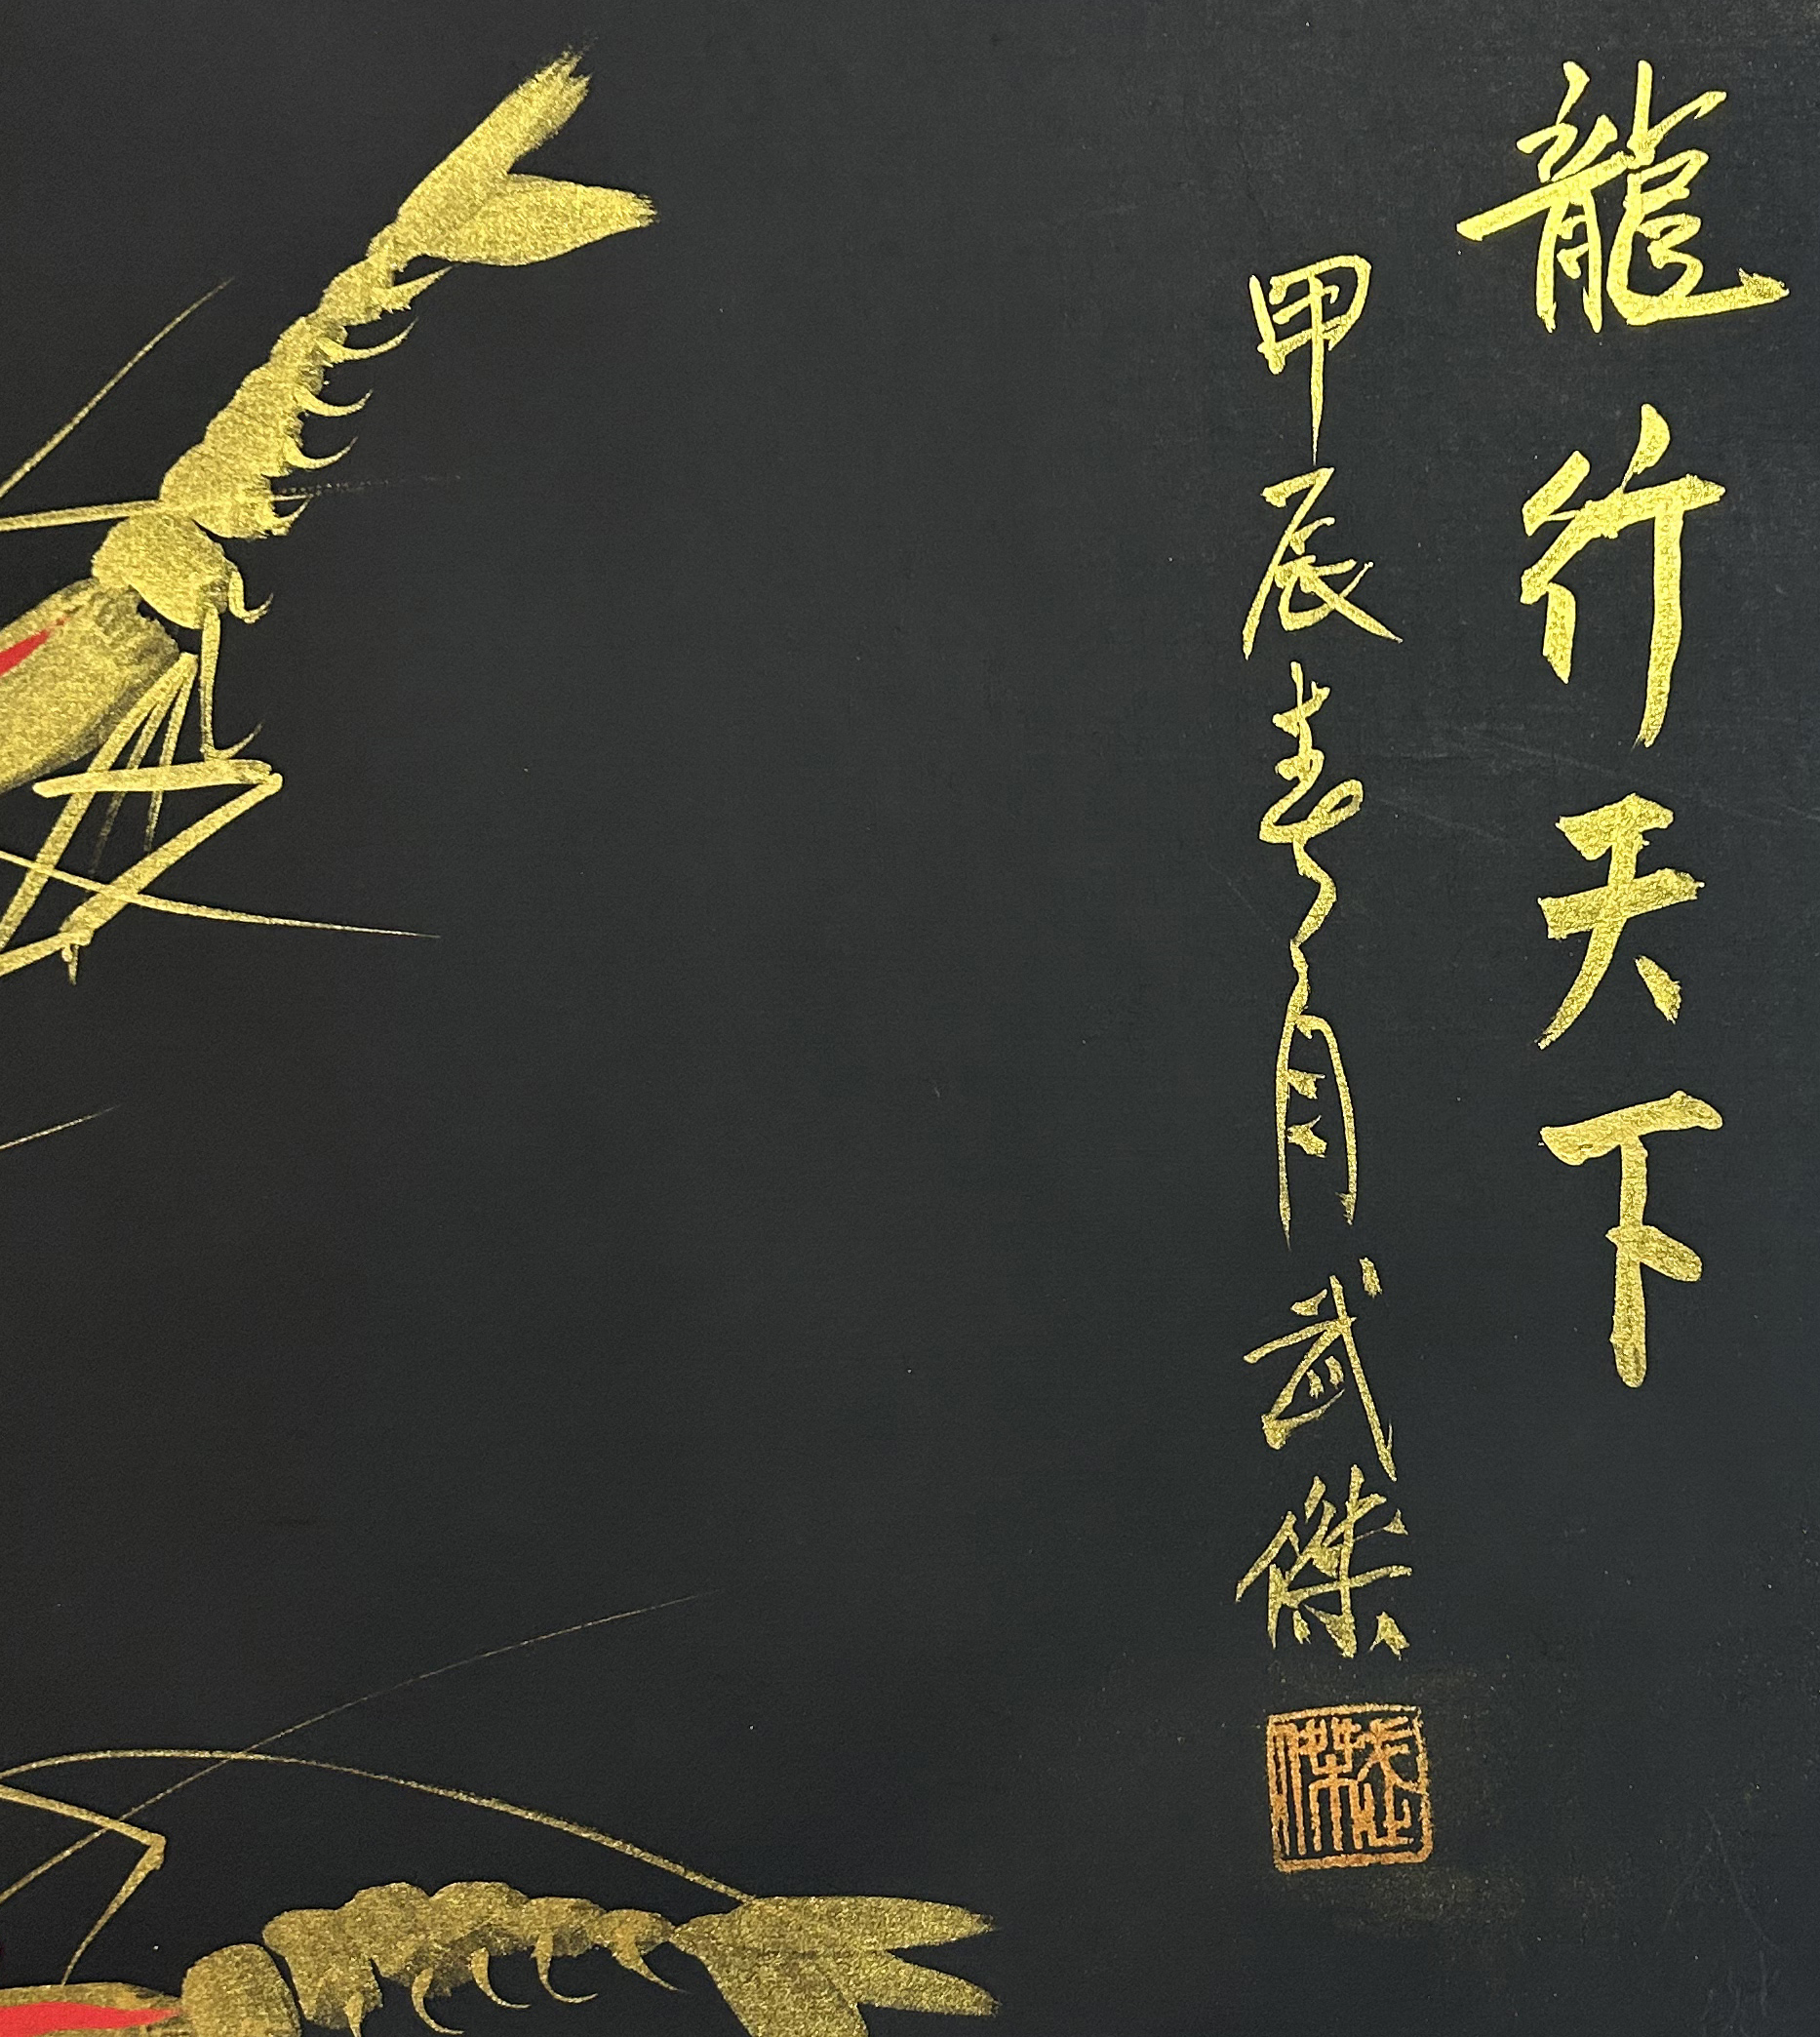 龍行天下
甲辰春月武傑
武傑